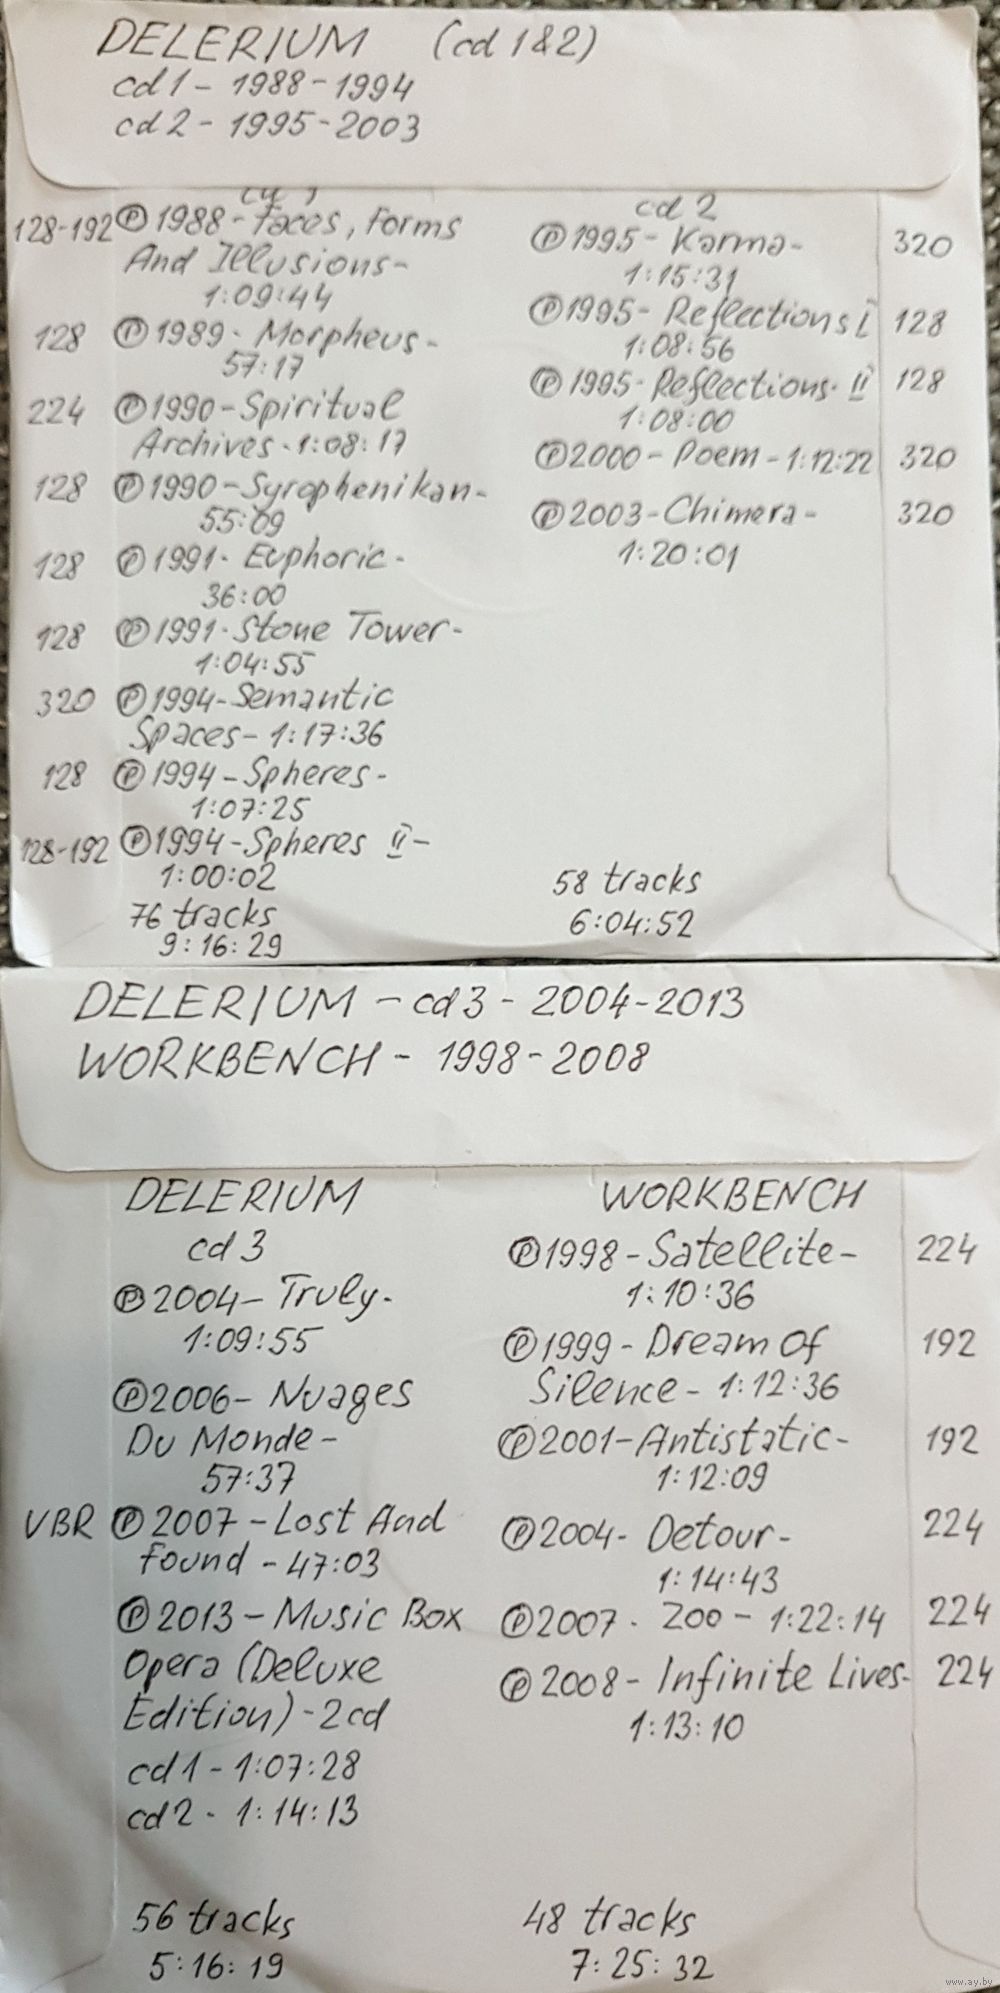 DELERIUM (cd 1&2)
cd 1 - 1988 - 1994
cd 2 - 1995 - 2003
cd 1
128-192 Ⓟ 1988 - Faces, Forms
And Illusions -
1:09:44
128 Ⓟ 1989 - Morpheus -
57:17
224 Ⓟ 1990 - Spiritual
Archives - 1:08:17
128 Ⓟ 1990 - Syrophenikan -
55:09
128 Ⓟ 1991 - Euphoric -
36:00
128 Ⓟ 1991 - Stone Tower -
1:04:55
320 Ⓟ 1994 - Semantic
Spaces - 1:17:36
128 Ⓟ 1994 - Spheres -
1:07:25
128-192 Ⓟ 1994 - Spheres II -
1:00:02
76 tracks
9:16:29
cd 2
Ⓟ 1995 - Karma - 320
1:15:31
Ⓟ 1995 - Reflections I 128
1:08:56
Ⓟ 1995 - Reflections II 128
1:08:00
Ⓟ 2000 - Poem - 1:12:22 320
Ⓟ 2003 - Chimera - 320
1:20:01
58 tracks
6:04:52
DELERIUM - cd 3 - 2004 - 2013
WORKBENCH - 1998 - 2008
DELERIUM
cd 3
Ⓟ 2004 - Truly -
1:09:55
Ⓟ 2006 - Nuages
Du Monde -
57:37
VBR Ⓟ 2007 - Lost And
Found - 47:03
Ⓟ 2013 - Music Box
Opera (Deluxe
Edition) - 2cd
cd 1 - 1:07:28
cd 2 - 1:14:13
56 tracks
5:16:19
WORKBENCH
Ⓟ 1998 - Satellite - 224
1:10:36
Ⓟ 1999 - Dream Of 192
Silence - 1:12:36
Ⓟ 2001 - Antistatic - 192
1:12:09
Ⓟ 2004 - Detour - 224
1:14:43
Ⓟ 2007 - Zoo - 1:22:14 224
Ⓟ 2008 - Infinite Lives - 224
1:13:10
48 tracks
7:25:32
www.ay.by